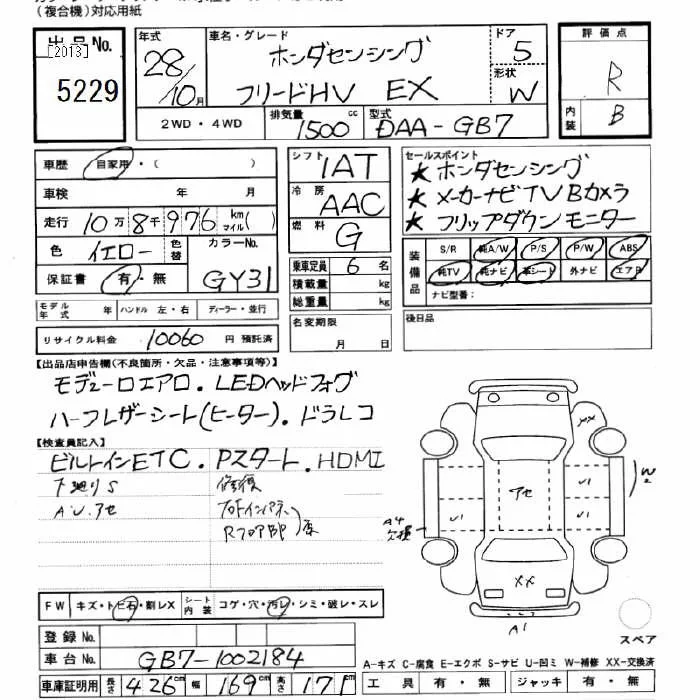 (複合機)対応用紙
出品No.
[2013]
5229
年式
28/10月
車名・グレード
ホンダセンシング
フリードHV EX
ドア
5
形状
W
評価点
R
内装
B
2WD・4WD
排気量
1500 cc
型式
DAA-GB7
車歴 自家用・( )
車検 年 月
走行 10万8千976 km マイル( )
色 イエロー 色替
カラーNo.
GY31
保証書 有・無
シフト 1AT
冷房 AAC
燃料 G
乗車定員 6 名
積載量 kg
総重量 kg
セールスポイント
★ホンダセンシング
★メーカーナビTVBカメラ
★フリップダウンモニター
装備品
S/R 純A/W P/S P/W ABS
純TV 純ナビ 革シート 外ナビ エアB
ナビ型番:
モデル年式 年 ハンドル 左・右 ディーラー・並行
リサイクル料金 10060 円 預託済
名変期限
月 日
後日品
【出品店申告欄(不良箇所・欠品・注意事項等)】
モデューロエアロ.LEDヘッドフォグ
ハーフレザーシート(ヒーター).ドラレコ
【検査員記入】
ビルトインETC.Pスタート.HDMI
下廻りS
A.U.アセ
修復
Rフロア
アセ
XX
U1
U1
U1
W2
A4
XX
A1
スペア
FW キズ・トビ石・割レX
シート内装 コゲ・穴・汚レ・シミ・破レ・スレ
登録No.
車台No. GB7-1002184
車庫証明用 長さ 426cm 幅 169cm 高さ 171cm
A-キズ C-腐食 E-エクボ S-サビ U-凹ミ W-補修 XX-交換済
工具 有・無 ジャッキ 有・無